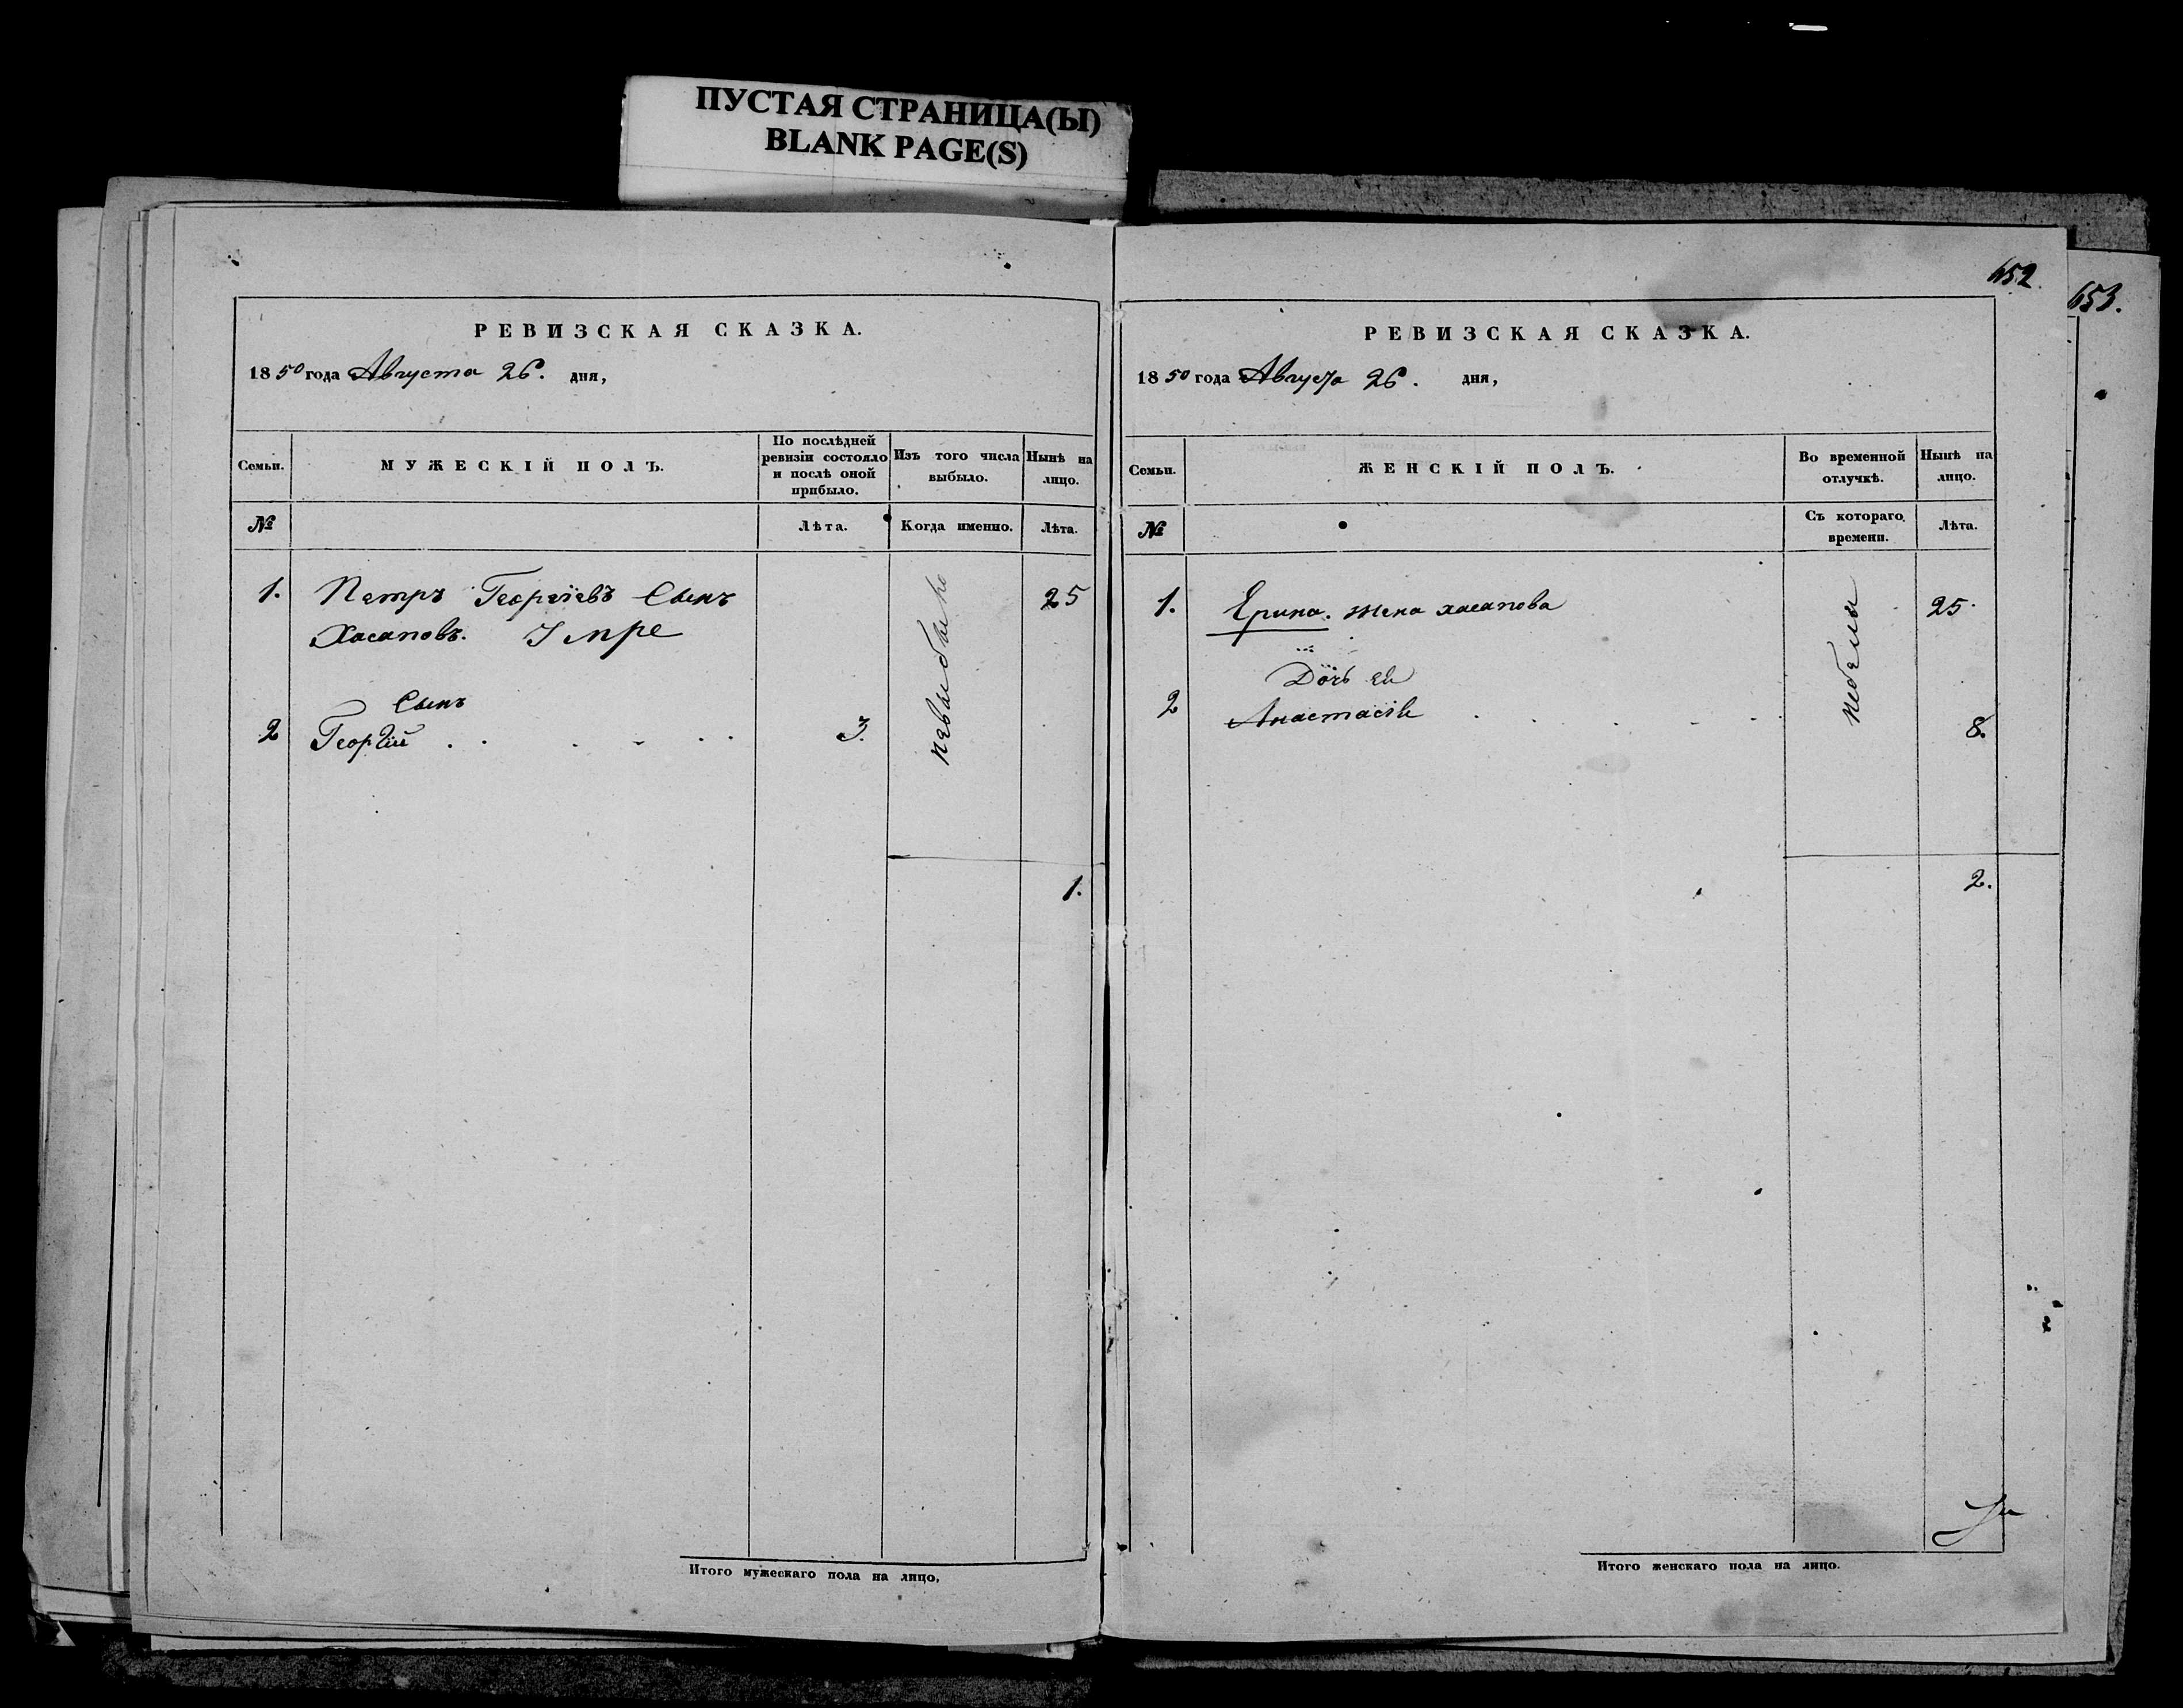 ПУСТАЯ СТРАНИЦА(Ы)
BLANK PAGE(S)
РЕВИЗСКАЯ СКАЗКА.
1850 года Августа 26. дня,
Семьи.
МУЖЕСКІЙ ПОЛЪ.
По послѣдней
ревизіи состояло
и послѣ оной
прибыло.
Изъ того числа
выбыло.
Нынѣ на
лицо.
№
Лѣта.
Когда именно.
Лѣта.
1. Петръ Георгіевъ Сынъ 25
Хасаповъ.
Сынъ
2 Георгій 3.
1.
Итого мужескаго пола на лицо,
652.
РЕВИЗСКАЯ СКАЗКА.
1850 года Августа 26. дня,
Семьи.
ЖЕНСКІЙ ПОЛЪ.
Во временной
отлучкѣ.
Нынѣ на
лицо.
№
Съ котораго
времени.
Лѣта.
1. Ерина. жена хасапова 25.
Дочь ей
2 Анастасія 8.
2.
Итого женскаго пола на лицо.
653.